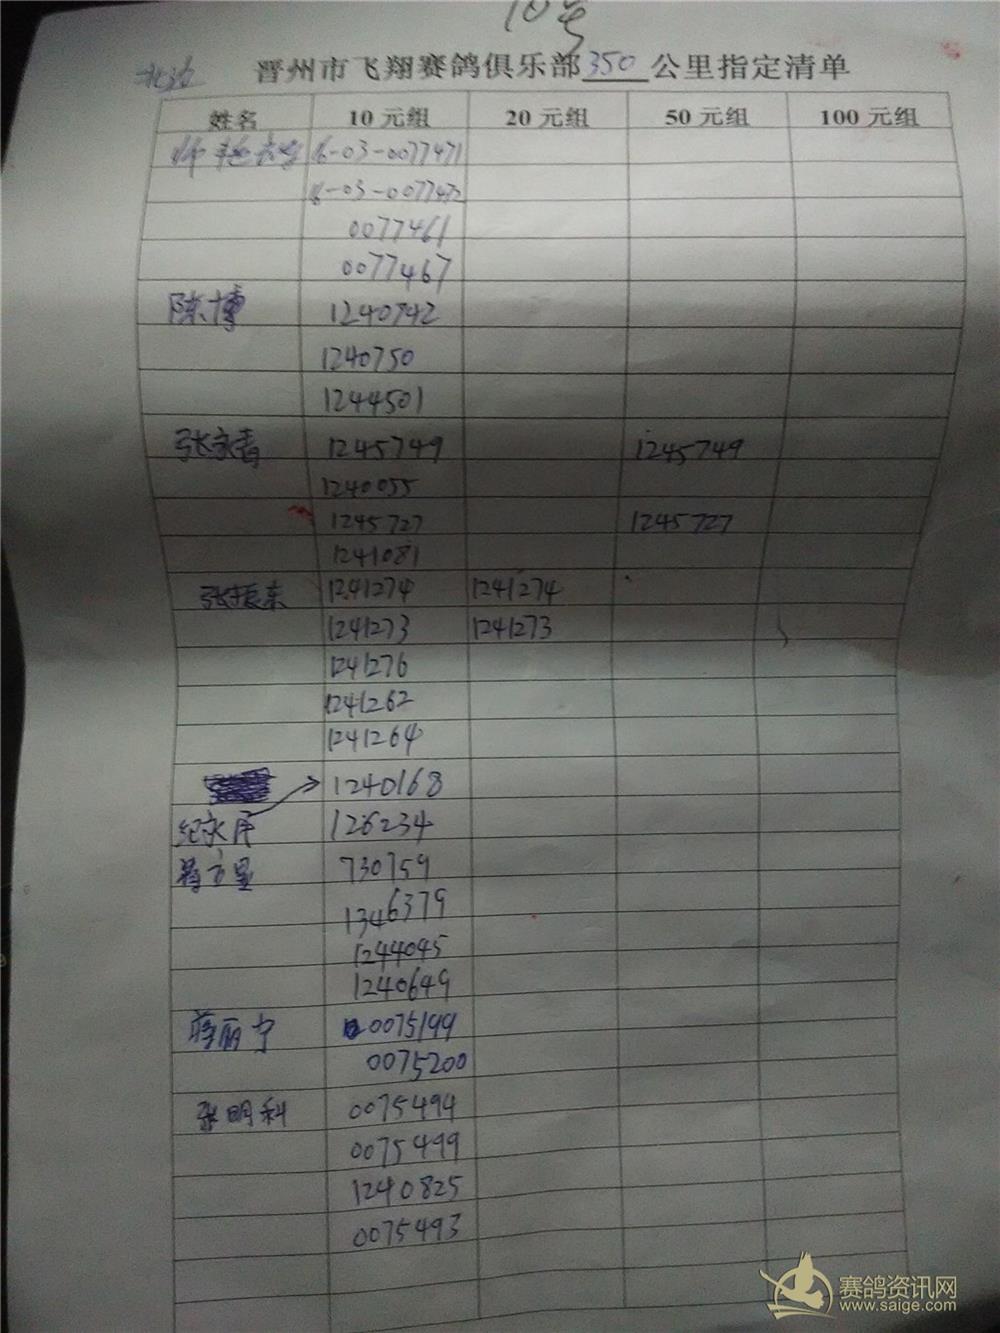 10号
北边 晋州市飞翔赛鸽俱乐部 350 公里指定清单
姓名 10元组 20元组 50元组 100元组
师 16-03-0077471
16-03-0077472
0077461
0077467
陈博 1240742
1240750
1244501
张永春 1245749 1245749
1240055
1245727 1245727
1241081
张振东 1241274 1241274
1241273 1241273
1241276
1241262
1241264
1240168
纪永 126234
730759
1346379
1244045
1240649
蒋丽宁 0075199
0075200
张明科 0075494
0075499
1240825
0075493
赛鸽资讯网
www.saige.com